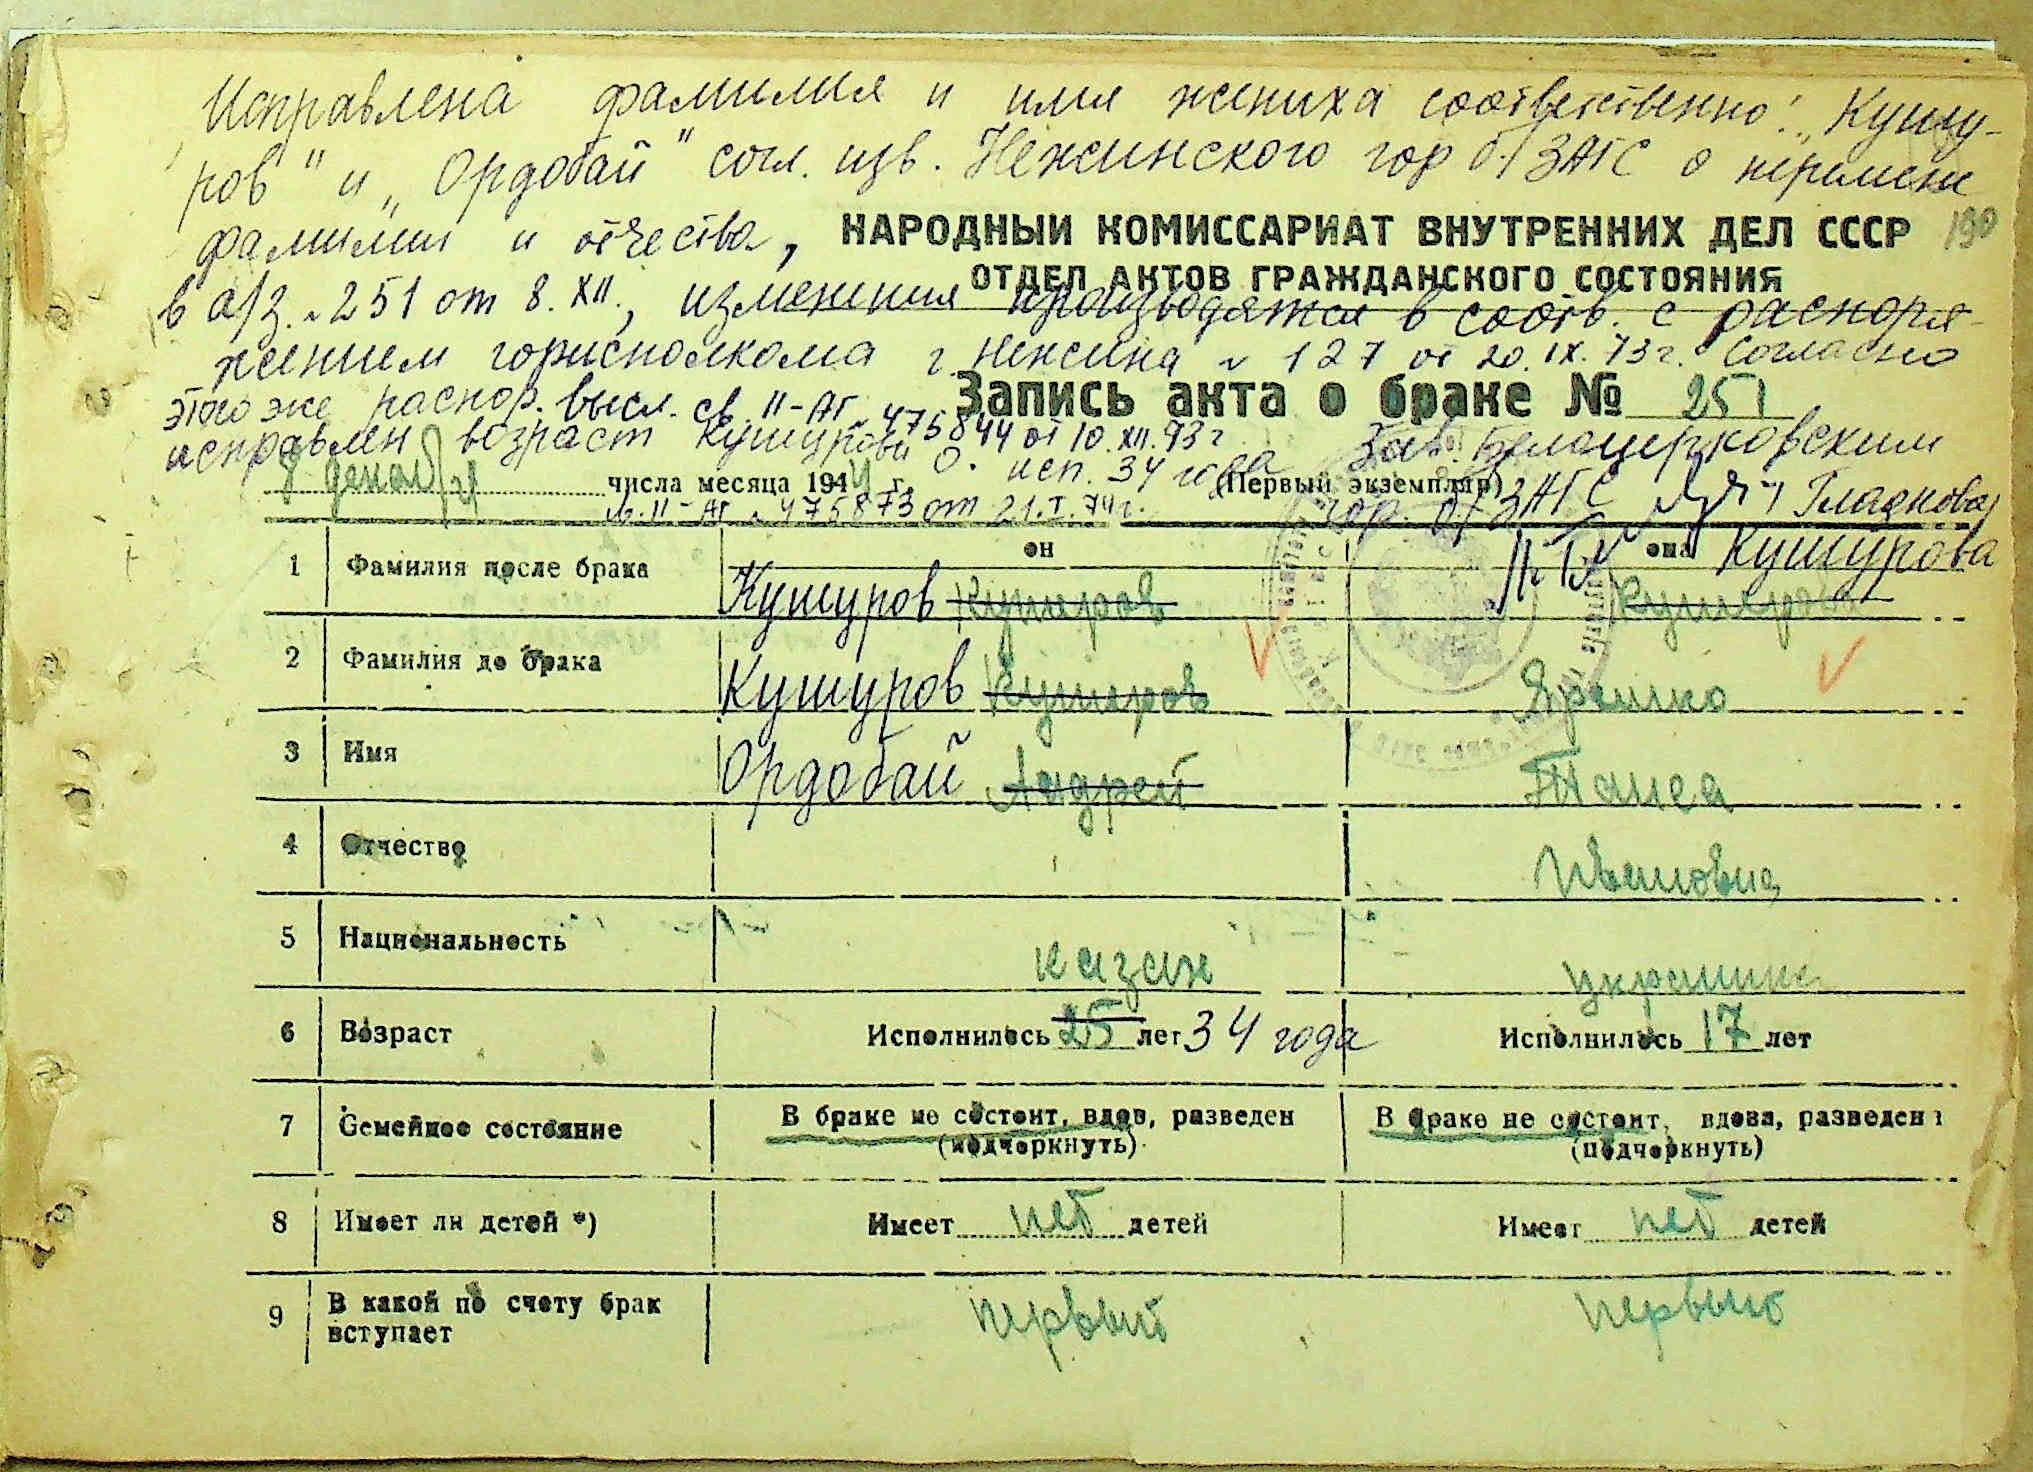 Исправлена фамилия и имя жениха соответственно: „Кушу-
ров" и „Ордобай" согл. изв. Нежинского гор б. ЗАГС о перемене
фамилии и отчества,
НАРОДНЫЙ КОМИССАРИАТ ВНУТРЕННИХ ДЕЛ СССР 190
ОТДЕЛ АКТОВ ГРАЖДАНСКОГО СОСТОЯНИЯ
в а/з. № 251 от 8. XII., изменения производятся в соотв. с распоря-
жением горисполкома г. Нежина № 127 от 20. IX. 73 г. Согласно
этого же распор. высл. св. II-АГ № 475844 от 10. XII. 73 г
Запись акта о браке № 251
исправлен возраст Кушурова О. исп. 34 года Зав. Белоцерковским
8 декабря числа месяца 1944 г. (Первый экземпляр)
II-АГ № 475873 от 21. I. 74 г. гор. б. ЗАГС Гладкова
он она
1 Фамилия после брака Кушуров Кушеров Кушурова Кушерова
2 Фамилия до брака Кушуров Кушеров Яременко
3 Имя Ордобай Андрей Таиса
4 Отчество Ивановна
5 Национальность казах украинка
6 Возраст Исполнилось 25 лет 34 года Исполнилось 17 лет
7 Семейное состояние В браке не состоит, вдов, разведен В браке не состоит, вдова, разведен
(подчеркнуть) (подчеркнуть)
8 Имеет ли детей *) Имеет нет детей Имеет нет детей
9 В какой по счету брак
вступает первый первый